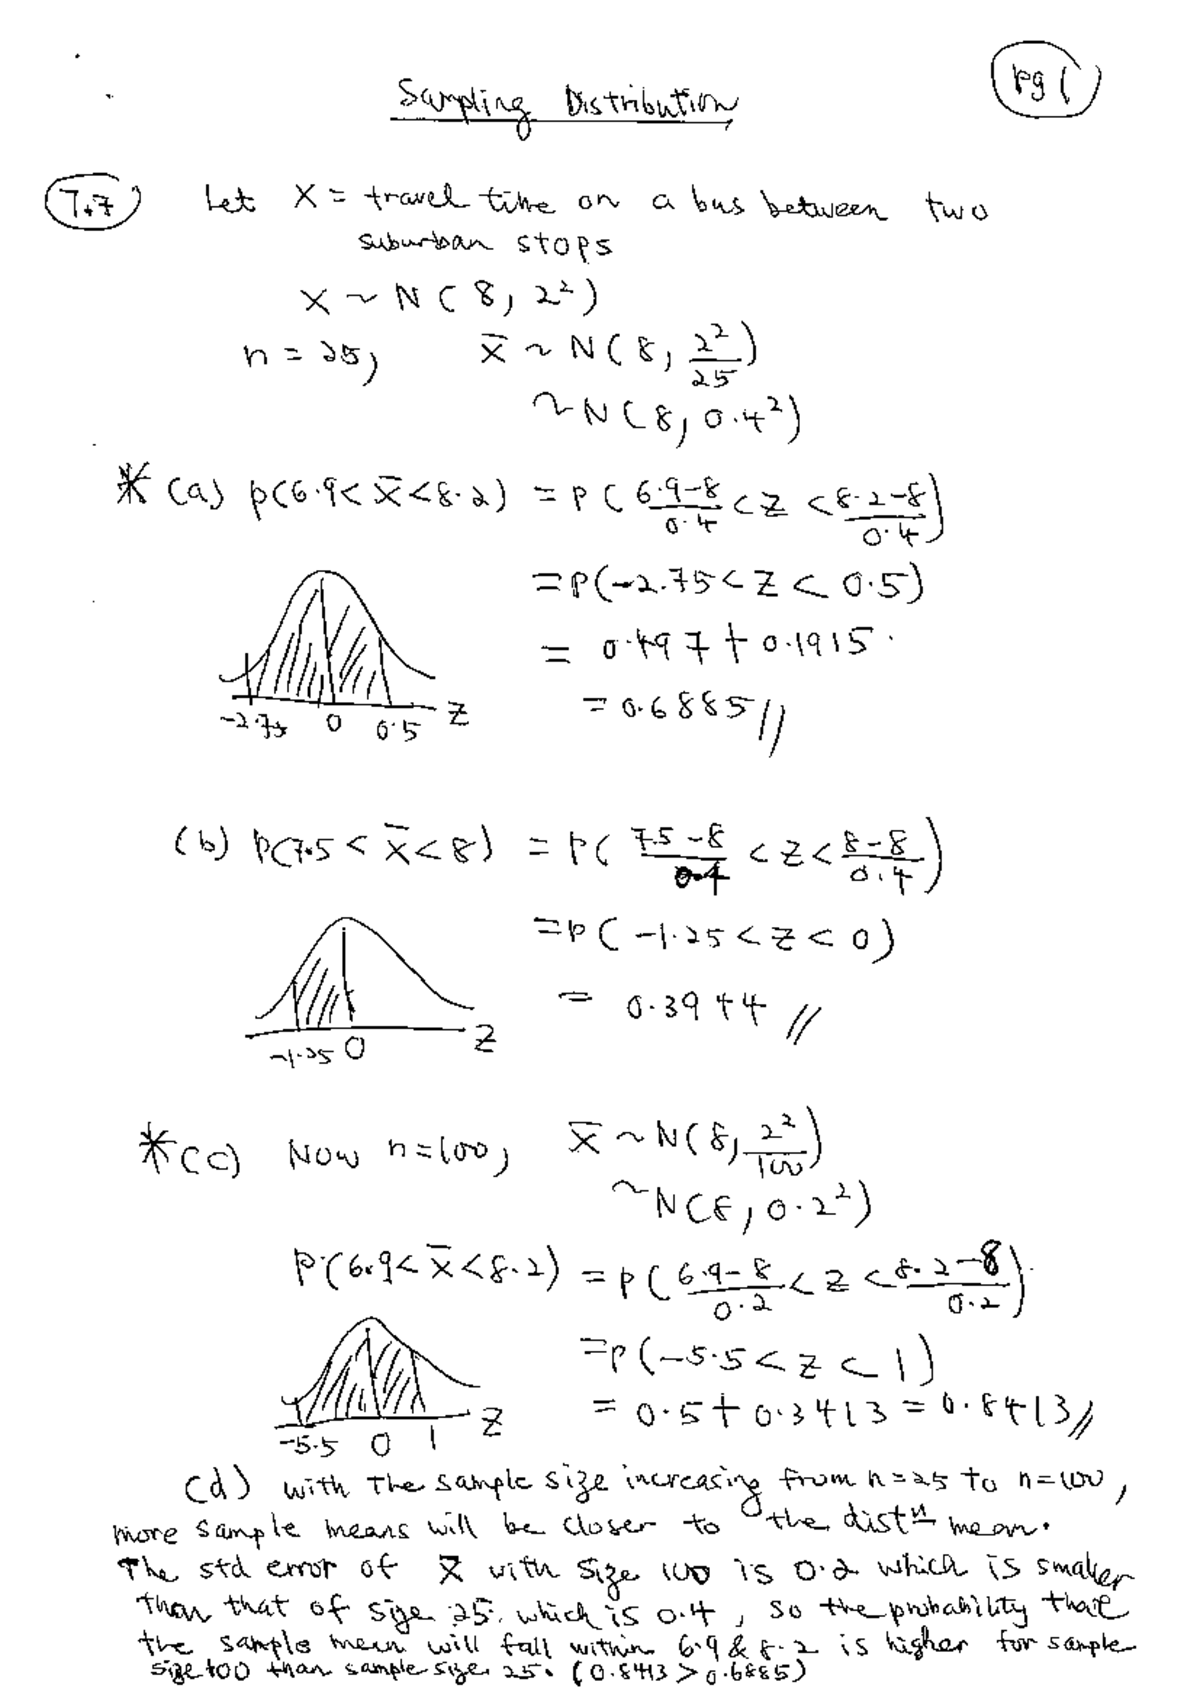 pg 1
Sampling Distribution
7.7 Let X = travel time on a bus between two
suburban stops
X ~ N(8, 2²)
n = 25, X̄ ~ N(8, 2²/25)
~ N(8, 0.4²)
* (a) P(6.9 < X̄ < 8.2) = P(6.9-8/0.4 < Z < 8.2-8/0.4)
= P(-2.75 < Z < 0.5)
= 0.497 + 0.1915
= 0.6885 //
-2.75 0 0.5 Z
(b) P(7.5 < X̄ < 8) = P(7.5-8/0.4 < Z < 8-8/0.4)
= P(-1.25 < Z < 0)
= 0.3944 //
-1.25 0 Z
* (c) Now n = 100, X̄ ~ N(8, 2²/100)
~ N(8, 0.2²)
P(6.9 < X̄ < 8.2) = P(6.9-8/0.2 < Z < 8.2-8/0.2)
= P(-5.5 < Z < 1)
= 0.5 + 0.3413 = 0.8413 //
-5.5 0 1 Z
(d) with the sample size increasing from n = 25 to n = 100,
more sample means will be closer to the distⁿ mean.
The std error of X̄ with size 100 is 0.2 which is smaller
than that of size 25, which is 0.4, so the probability that
the sample mean will fall within 6.9 & 8.2 is higher for sample
size 100 than sample size 25. (0.8413 > 0.6885)